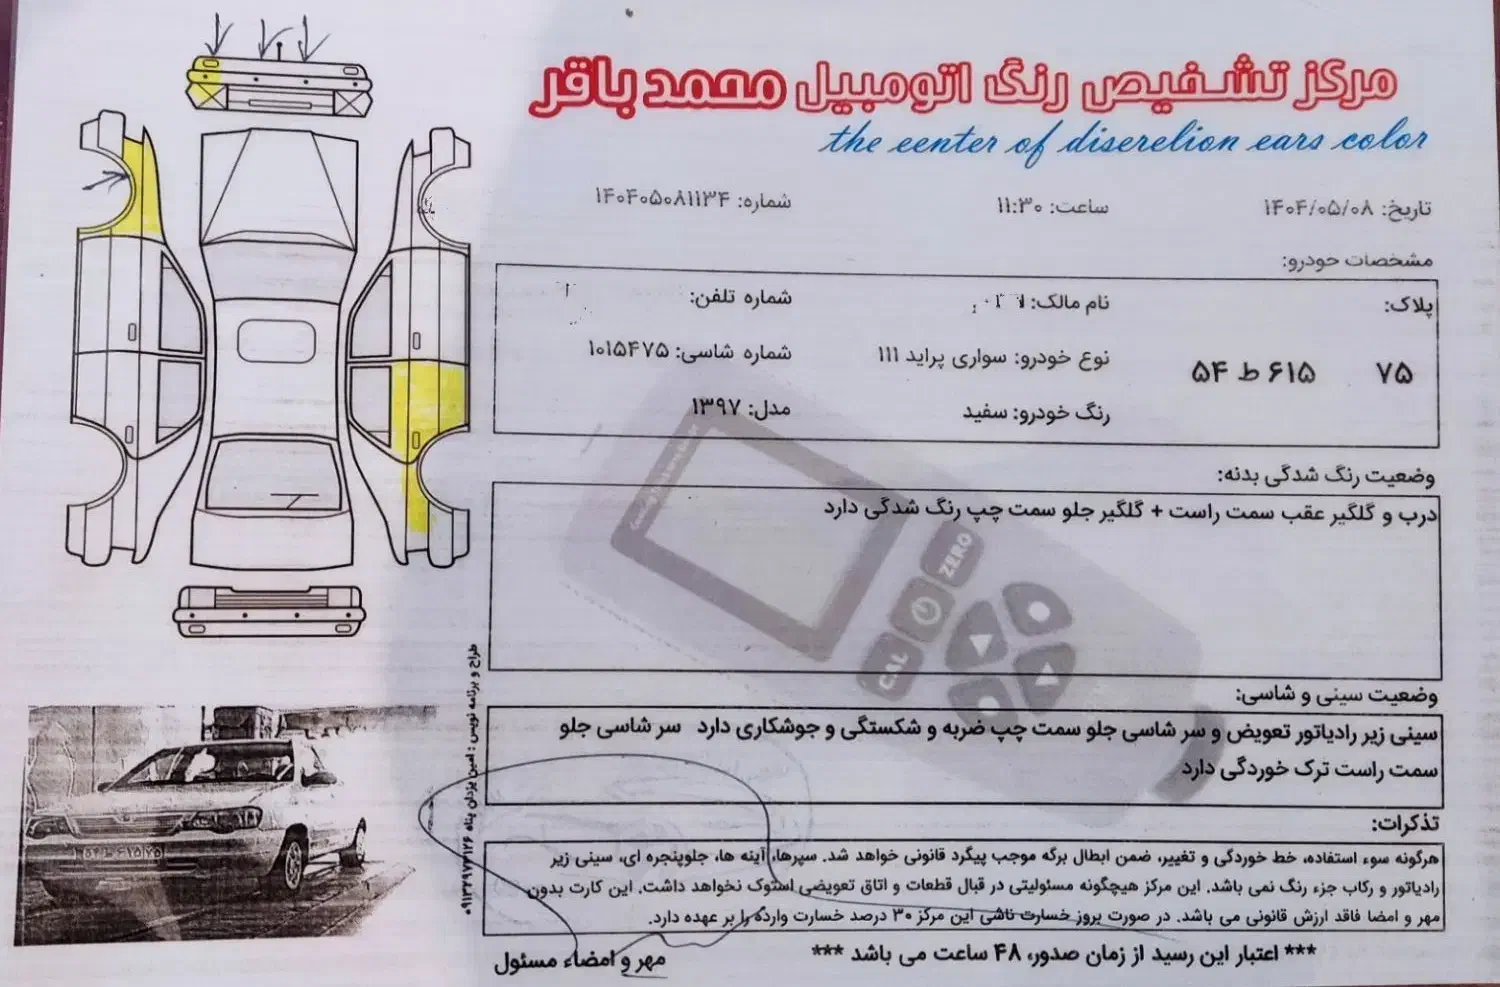 مرکز تشخیص رنگ اتومبیل محمد باقر
the eenter of diserelion ears color
تاریخ: ۱۴۰۴/۰۵/۰۸ ساعت: ۱۱:۳۰ شماره: ۱۴۰۴۰۵۰۸۱۱۳۴
مشخصات خودرو:
پلاک: نام مالک: شماره تلفن:
۷۵ ۶۱۵ ط ۵۴ نوع خودرو: سواری پراید ۱۱۱ شماره شاسی: ۱۰۱۵۴۷۵
رنگ خودرو: سفید مدل: ۱۳۹۷
وضعیت رنگ شدگی بدنه:
درب و گلگیر عقب سمت راست + گلگیر جلو سمت چپ رنگ شدگی دارد
ZERO
CAL
وضعیت سینی و شاسی:
سینی زیر رادیاتور تعویض و سر شاسی جلو سمت چپ ضربه و شکستگی و جوشکاری دارد سر شاسی جلو
سمت راست ترک خوردگی دارد
تذکرات:
هرگونه سوء استفاده، خط خوردگی و تغییر، ضمن ابطال برگه موجب پیگرد قانونی خواهد شد. سپرها، آینه ها، جلوپنجره ای، سینی زیر
رادیاتور و رکاب جزء رنگ نمی باشد. این مرکز هیچگونه مسئولیتی در قبال قطعات و اتاق تعویضی استوک نخواهد داشت. این کارت بدون
مهر و امضا فاقد ارزش قانونی می باشد. در صورت بروز خسارت ناشی این مرکز ۳۰ درصد خسارت وارده را بر عهده دارد.
*** اعتبار این رسید از زمان صدور، ۴۸ ساعت می باشد ***
مهر و امضاء مسئول
طراح و برنامه نویس : امین یزدان پناه
۵۴ ط ۶۱۵ ۷۵